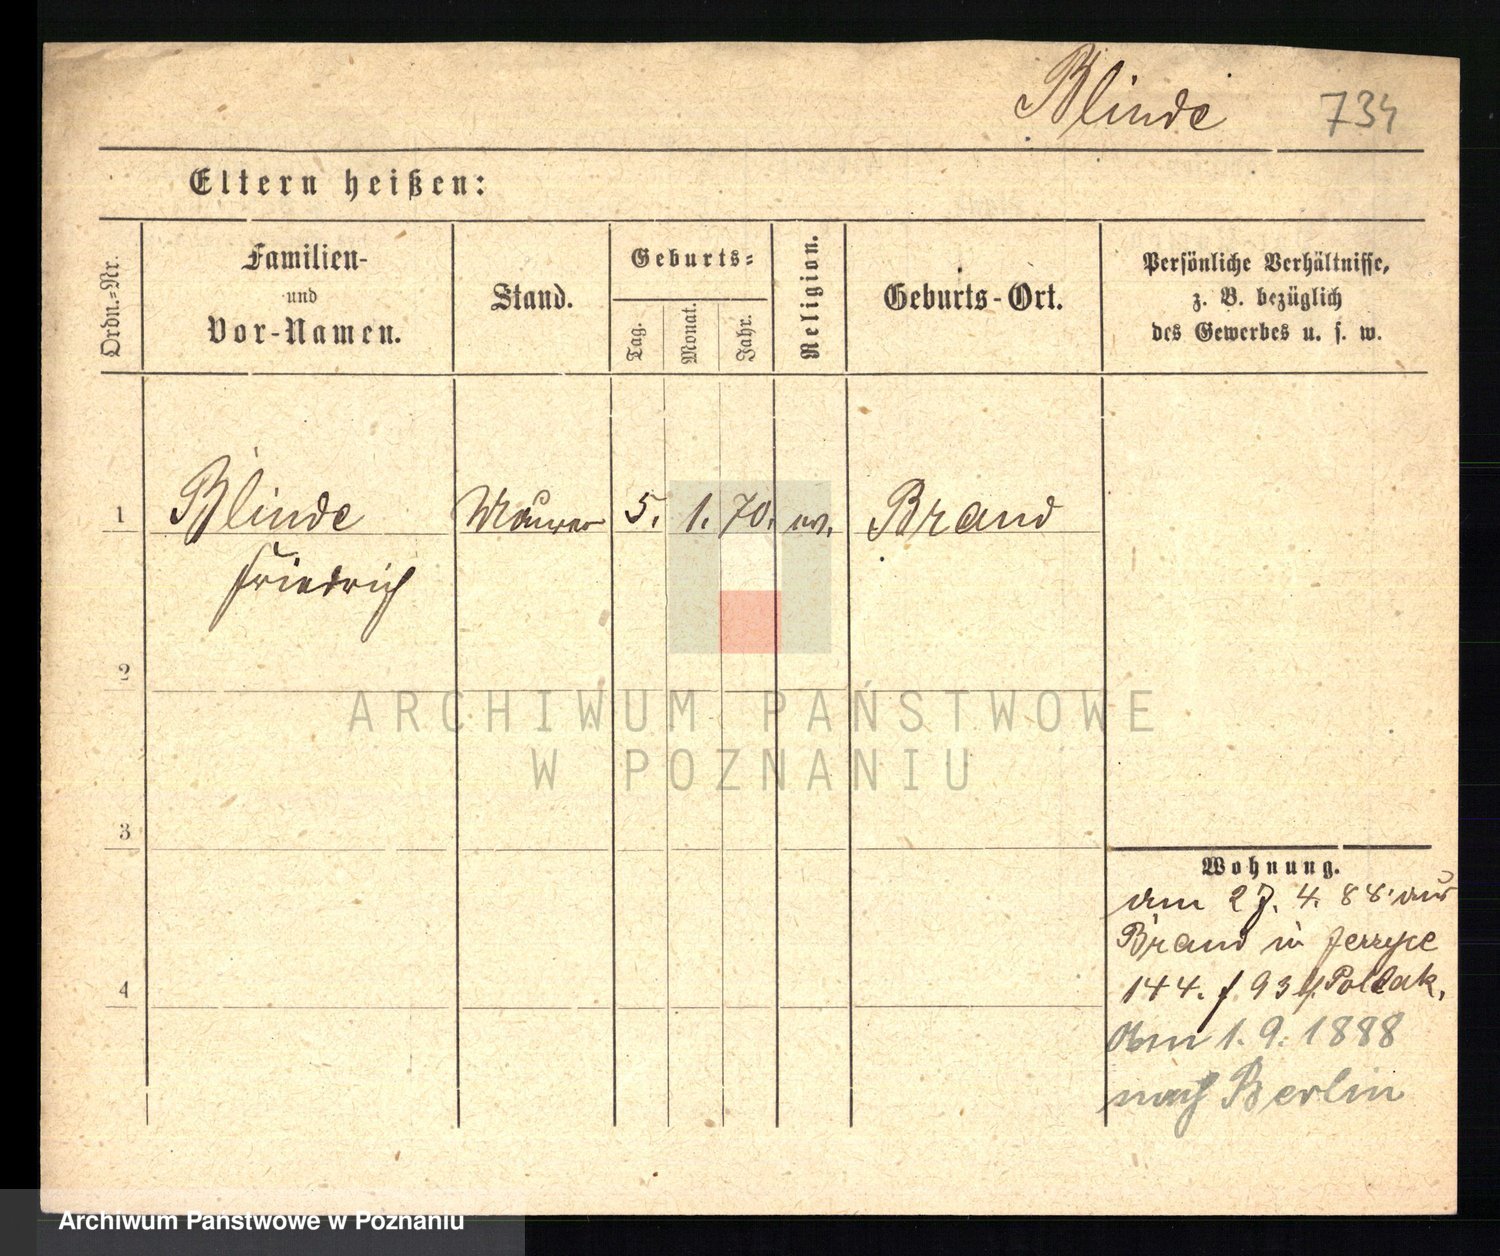 Blinde 734
Eltern heißen:
Ordn.-Nr.
Familien-
und
Vor-Namen.
Stand.
Geburts-
Tag.
Monat.
Jahr.
Religion.
Geburts-Ort.
Persönliche Verhältnisse,
z. B. bezüglich
des Gewerbes u. s. w.
1 Blinde Maurer 5. 1. 70. ev. Brand
Friedrich
2
3
4
Wohnung.
am 27. 4. 88. aus
Brand in
144. Pollak.
am 1. 9. 1888
nach Berlin
ARCHIWUM PAŃSTWOWE
W POZNANIU
Archiwum Państwowe w Poznaniu